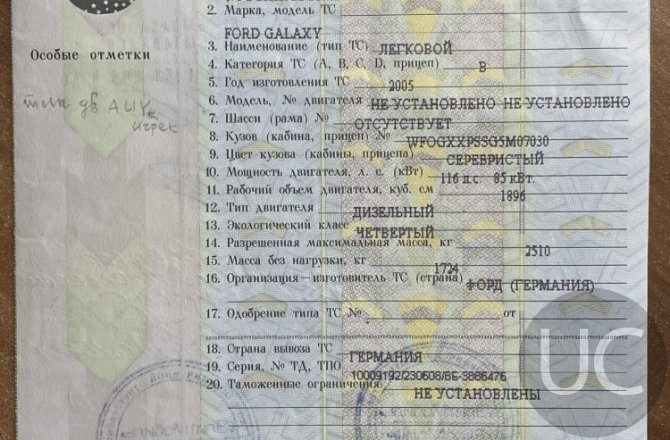 2. Марка, модель ТС
FORD GALAXY
3. Наименование (тип ТС) ЛЕГКОВОЙ
Особые отметки
4. Категория ТС (А, В, С, D, прицеп) В
5. Год изготовления ТС 2005
6. Модель, № двигателя НЕ УСТАНОВЛЕНО НЕ УСТАНОВЛЕНО
тип дв АUY
игрек
7. Шасси (рама) № ОТСУТСТВУЕТ
8. Кузов (кабина, прицеп) № WFOGXXPSSG5M07030
9. Цвет кузова (кабины, прицепа) СЕРЕБРИСТЫЙ
10. Мощность двигателя, л. с. (кВт) 116 л.с 85 кВт.
11. Рабочий объем двигателя, куб. см 1896
12. Тип двигателя ДИЗЕЛЬНЫЙ
13. Экологический класс ЧЕТВЕРТЫЙ
14. Разрешенная максимальная масса, кг 2510
15. Масса без нагрузки, кг 1724
16. Организация-изготовитель ТС (страна) ФОРД (ГЕРМАНИЯ)
17. Одобрение типа ТС № от
18. Страна вывоза ТС ГЕРМАНИЯ
19. Серия, № ТД, ТПО 10009192/230608/
20. Таможенные ограничения НЕ УСТАНОВЛЕНЫ
UC